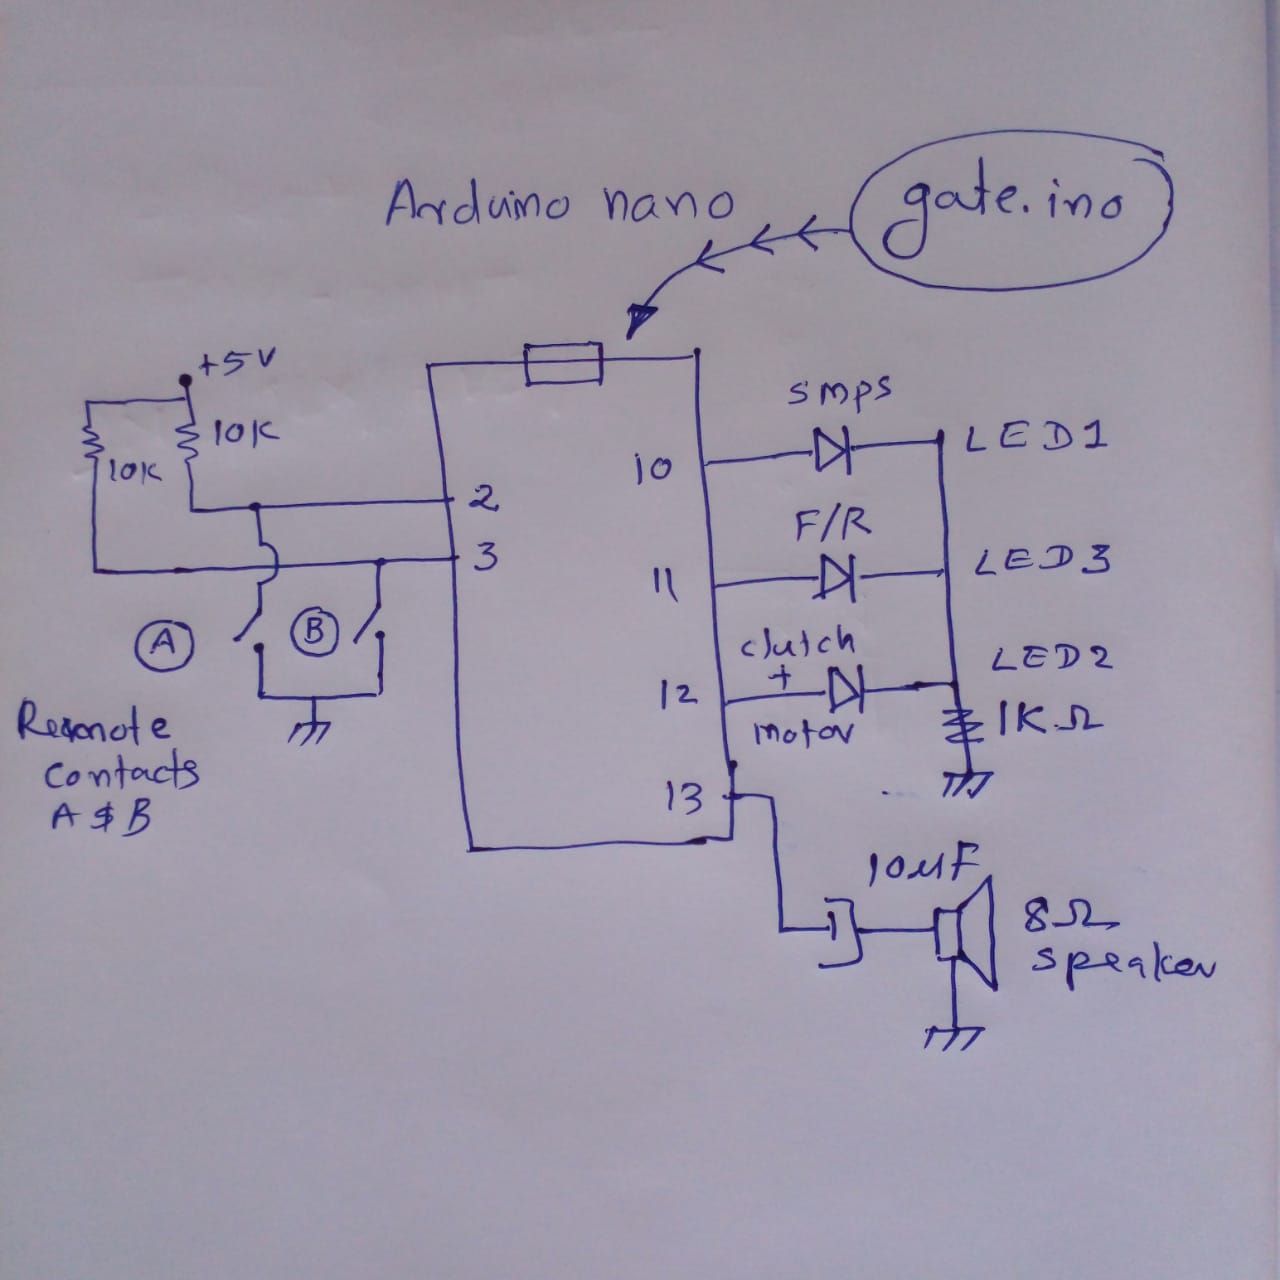 Arduino nano
gate.ino
+5V
10K
10K
2
3
A
B
Remote
Contacts
A & B
10
11
12
13
smps
LED1
F/R
LED3
clutch
+
motor
LED2
1KΩ
10µF
8Ω
speaker